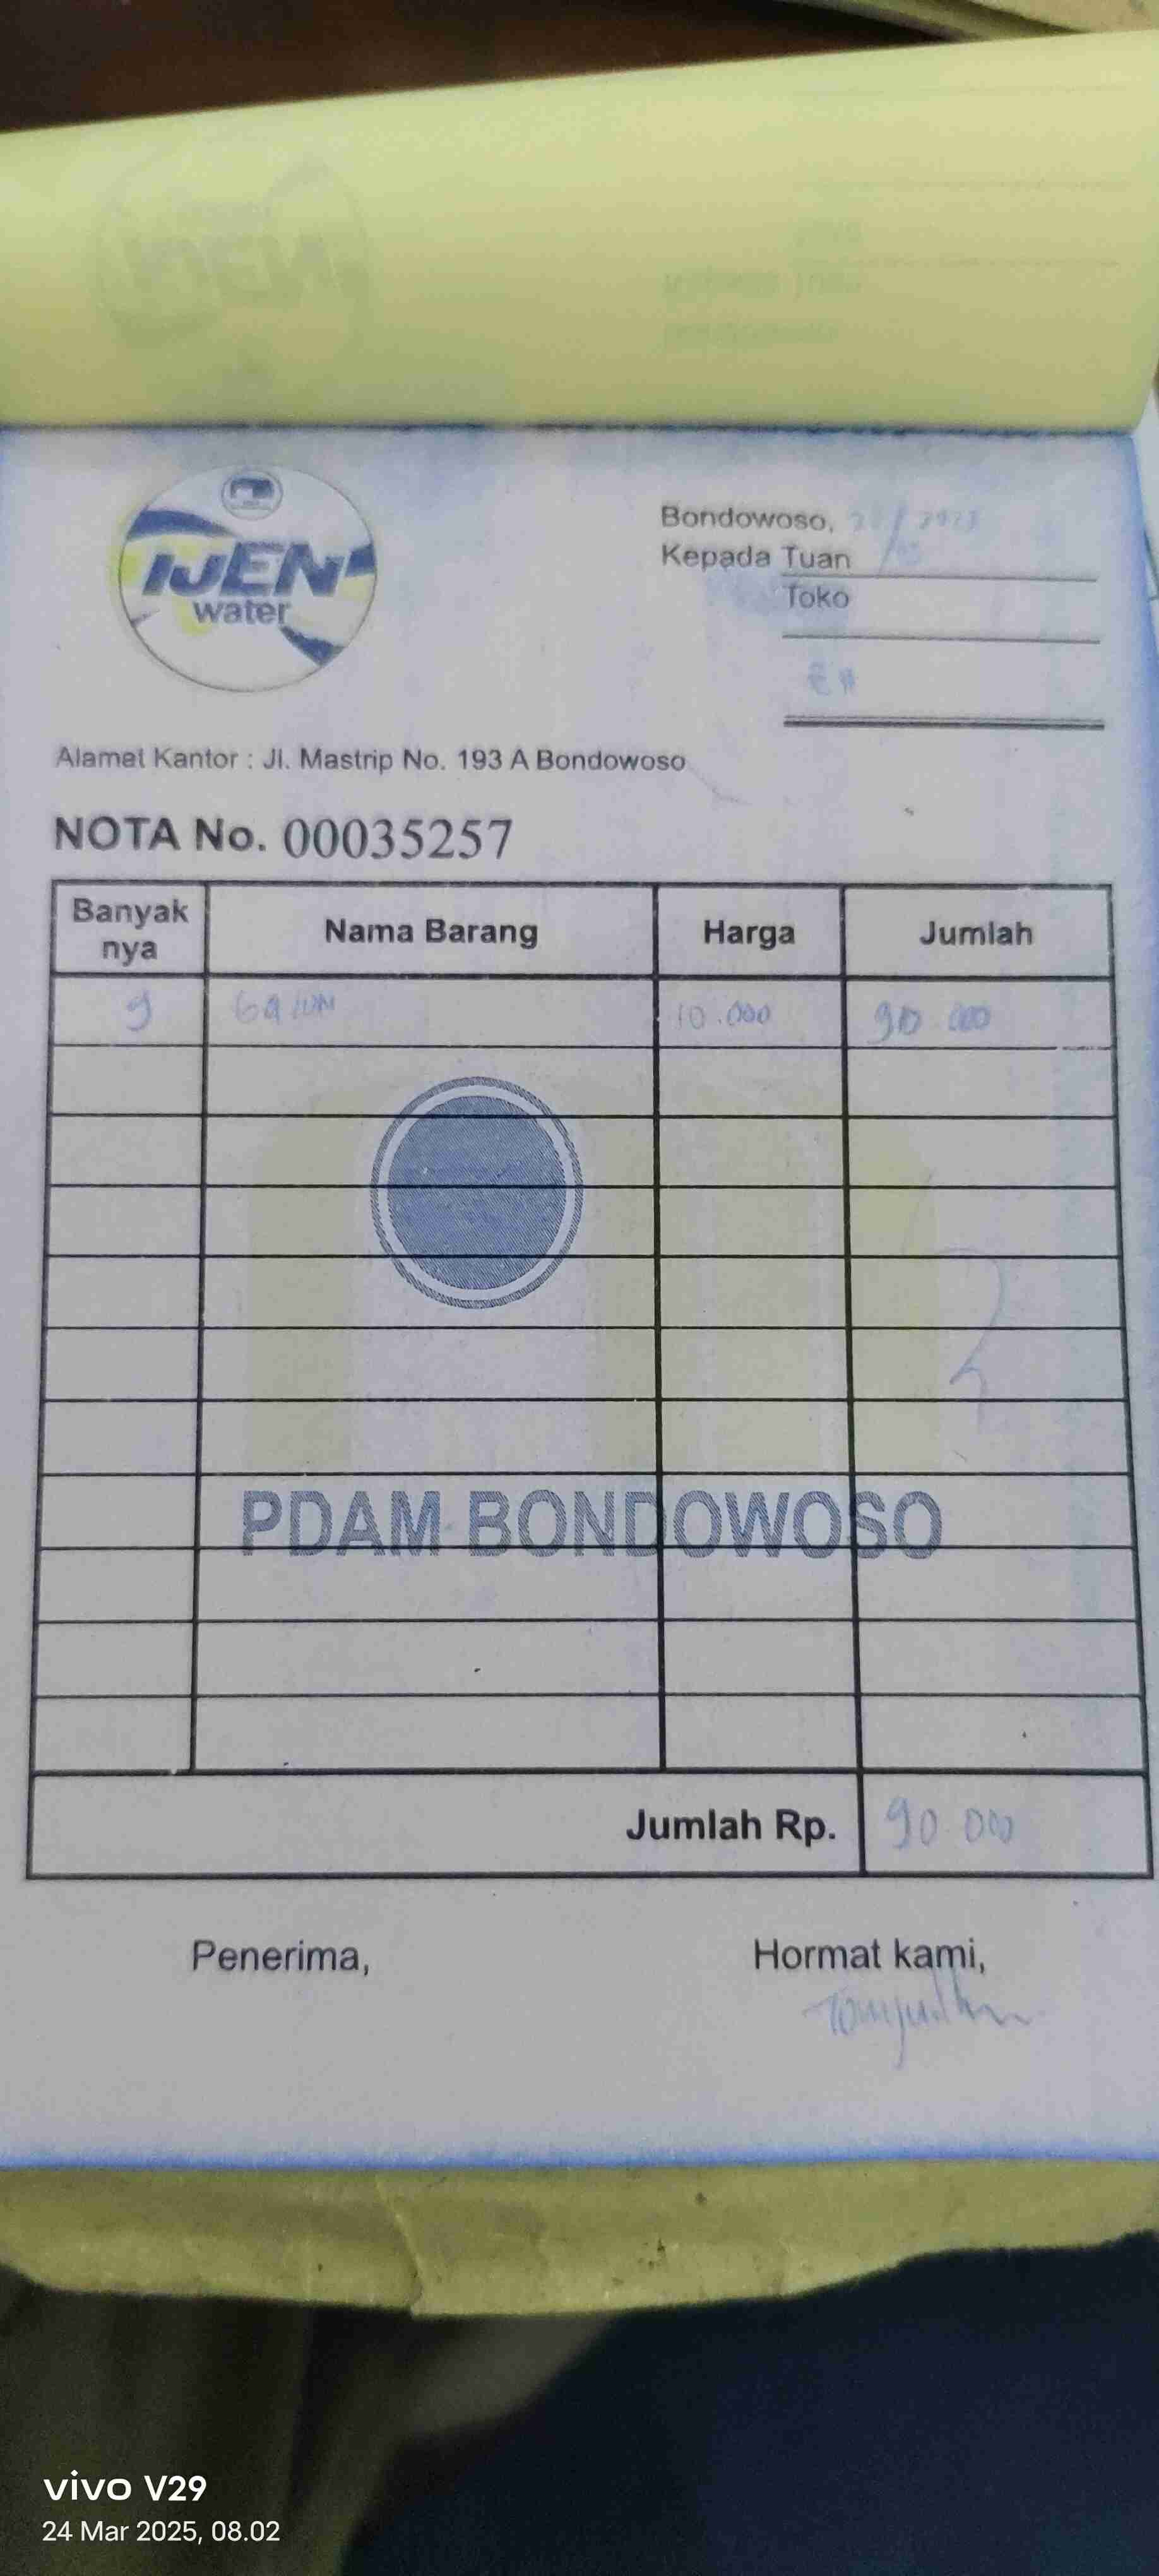 IJEN
water
Bondowoso,
Kepada Tuan
Toko
Alamat Kantor : Jl. Mastrip No. 193 A Bondowoso
NOTA No. 00035257
Banyak nya Nama Barang Harga Jumlah
9 Galon 10.000 90 000
PDAM BONDOWOSO
Jumlah Rp. 90 000
Penerima, Hormat kami,
vivo V29
24 Mar 2025, 08.02